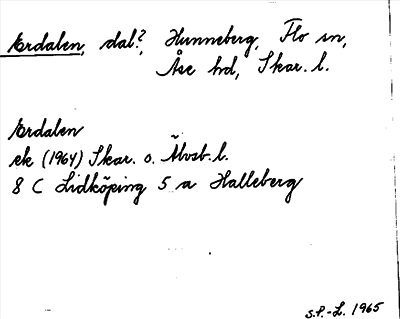 Ärdalen, dal?, Hunneberg, Flo sn,
Åse hd, Skar. l.
Ärdalen
ek (1964) Skar. o. Älvsb. l.
8 C Lidköping 5 a Halleberg
S.P.-L. 1965